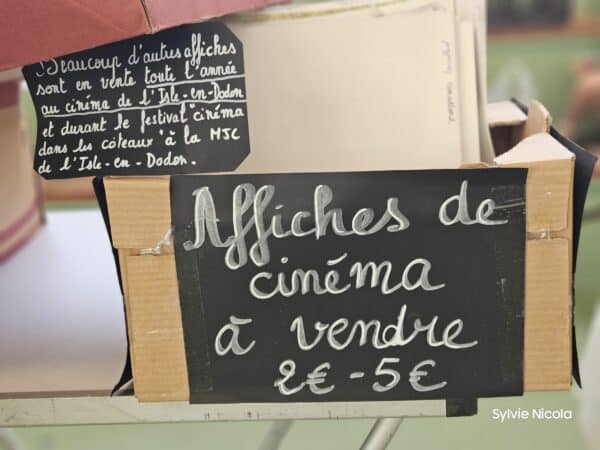 Beaucoup d'autres affiches
sont en vente toute l'année
au cinéma de l'Isle-en-Dodon
et durant le festival "cinéma
dans les côteaux" à la MJC
de l'Isle-en-Dodon.
Affiches de
cinéma
à vendre
2€ - 5€
Sylvie Nicola